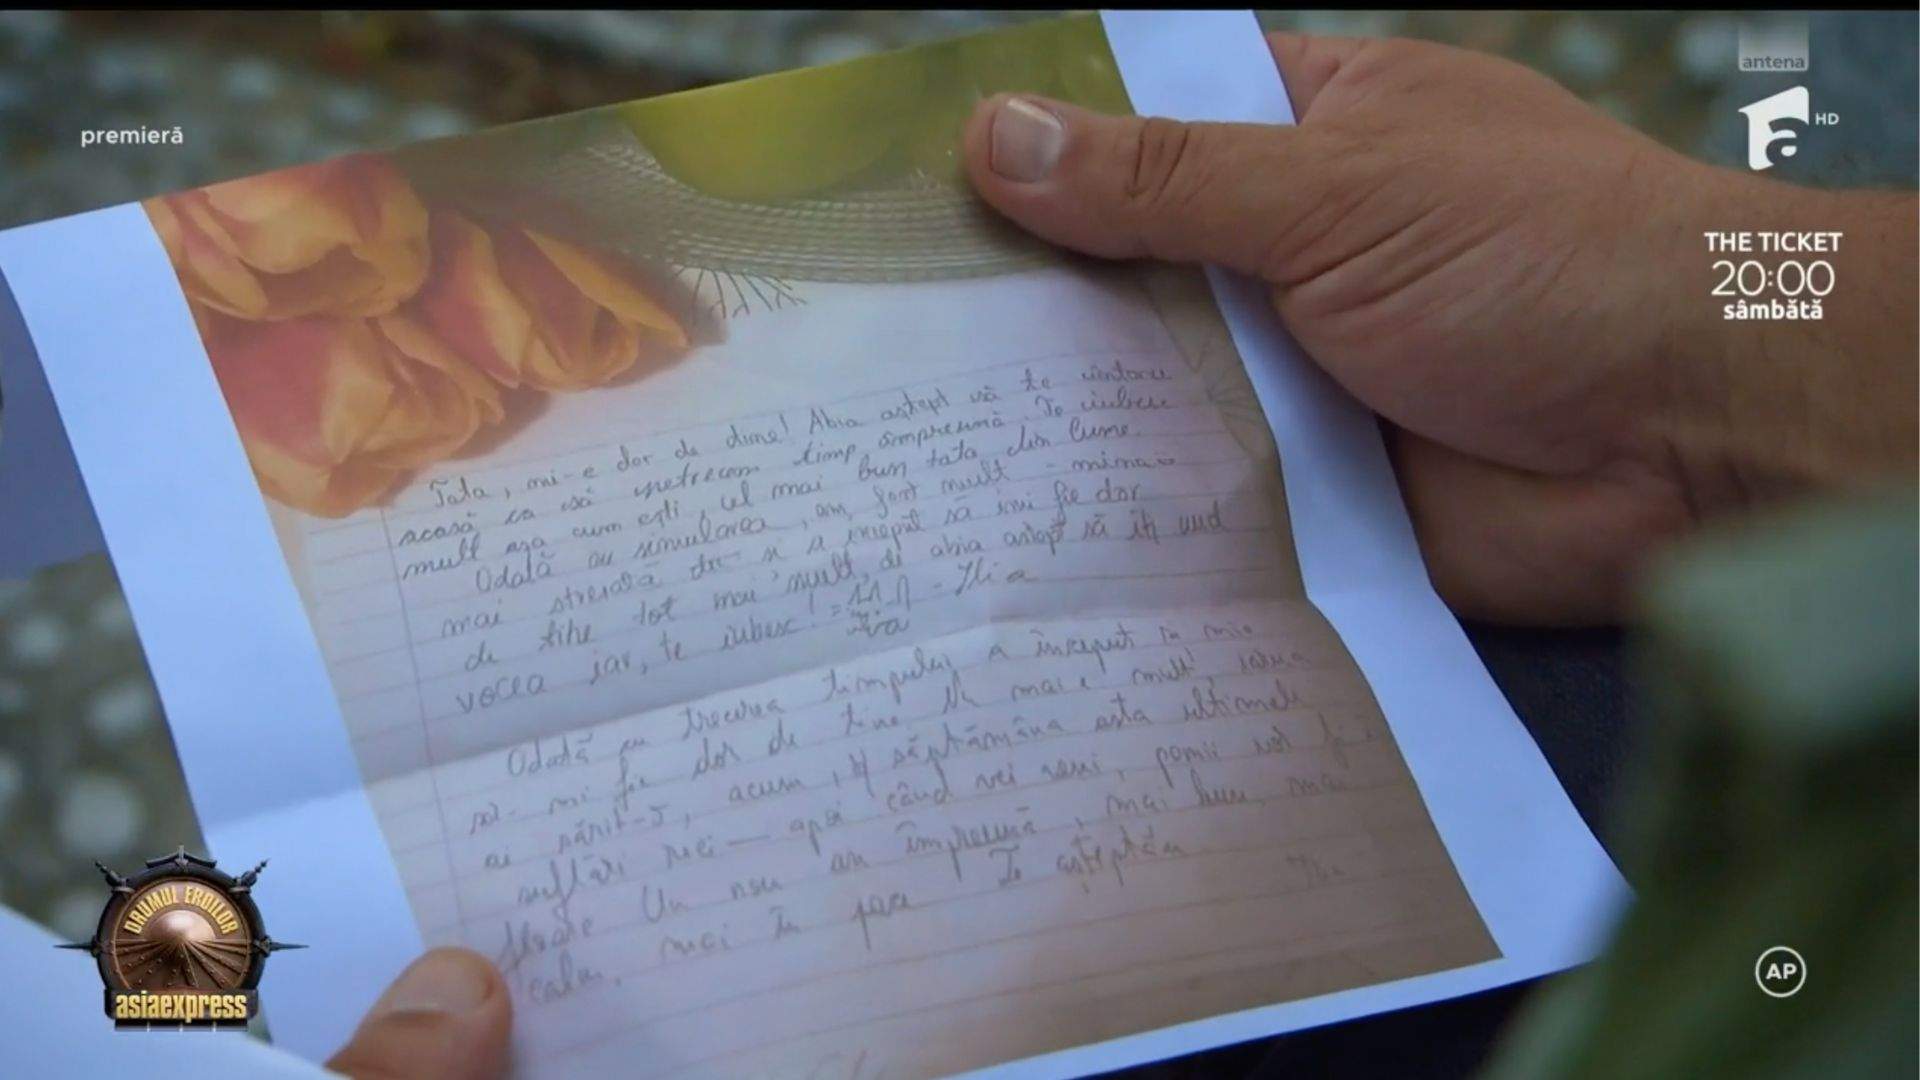 antena
HD
premieră
THE TICKET
20:00
sâmbătă
Tata, mi-e dor de tine! Abia aștept să te întorci
acasă ca să petrecem timp împreună. Te iubesc
mult așa cum ești, cel mai bun tata din lume.
Odată cu simularea, am fost mult
mai stresată și a început să îmi fie dor
de tine tot mai mult, abia aștept să îți aud
vocea iar, te iubesc!
Odată cu trecerea timpului a început să mi
dor de tine mai mult, iarna
ai sărit-o, acum, săptămâna asta ultimele
suflări reci apoi când vei veni, pomii vor fi
floare Un nou an împreună, mai bun, mai
calm, mai în pace Te așteptăm
DRUMUL EROILOR
asiaexpress
AP